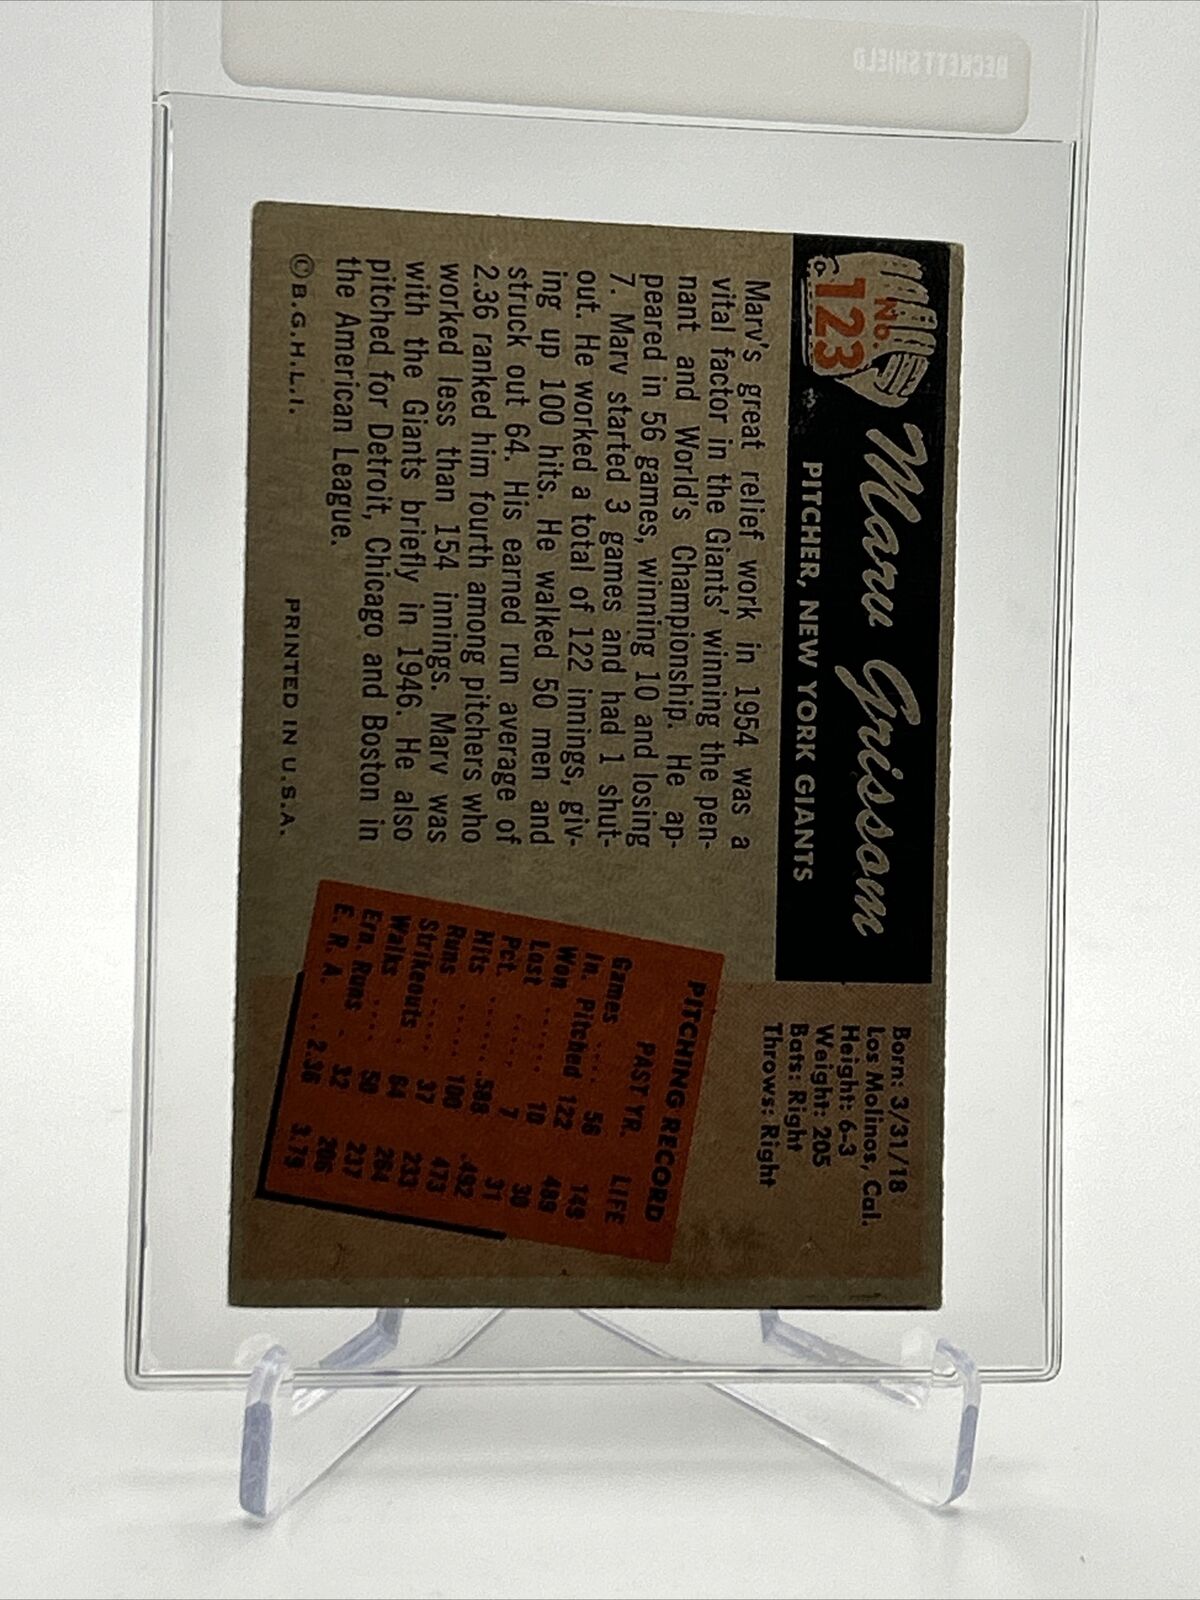 BECKETT SHIELD
No.
123
Marv Grissom
PITCHER, NEW YORK GIANTS
Born: 3/31/18
Los Molinos, Cal.
Height: 6-3
Weight: 205
Bats: Right
Throws: Right
Marv's great relief work in 1954 was a
vital factor in the Giants' winning the pen-
nant and World's Championship. He ap-
peared in 56 games, winning 10 and losing
7. Marv started 3 games and had 1 shut-
out. He worked a total of 122 innings, giv-
ing up 100 hits. He walked 50 men and
struck out 64. His earned run average of
2.36 ranked him fourth among pitchers who
worked less than 154 innings. Marv was
with the Giants briefly in 1946. He also
pitched for Detroit, Chicago and Boston in
the American League.
PITCHING RECORD
PAST YR. LIFE
Games .... 56 149
In. Pitched 122 489
Won ...... 10 30
Lost ...... 7 31
Pct. ...... .588 .492
Hits ...... 100 473
Runs ...... 37 233
Strikeouts .... 64 264
Walks .... 50 237
Ern. Runs . 32 206
E. R. A. ..2.36 3.79
© B.G.H.L.I. PRINTED IN U.S.A.